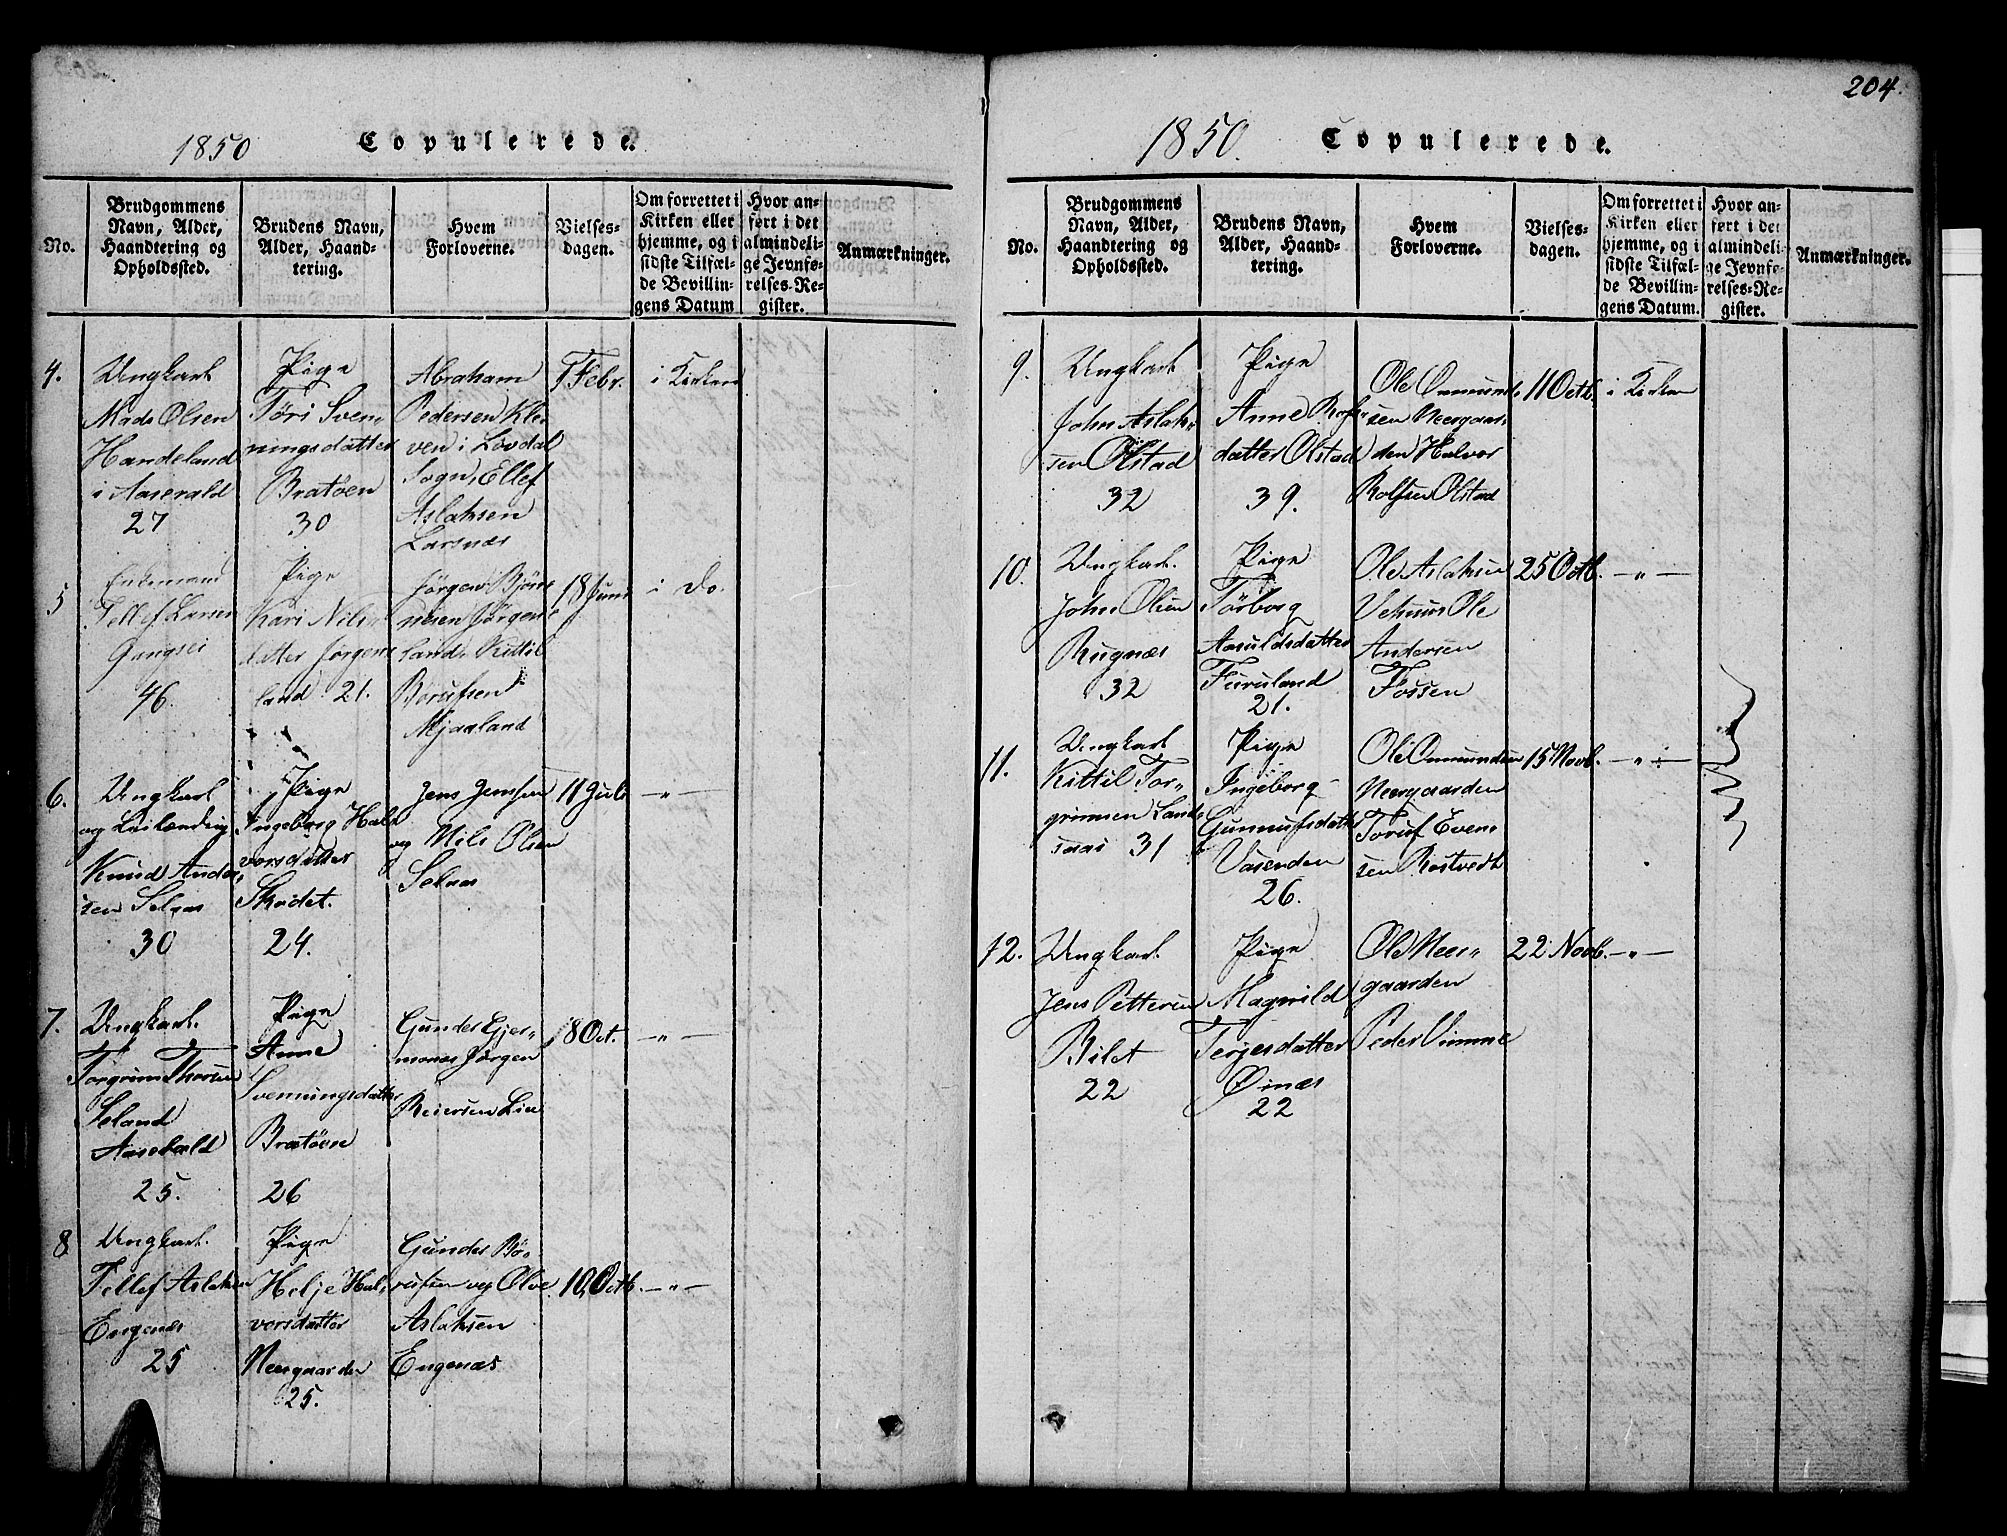 1850 Copulerede.
No.
Brudgommens
Navn, Alder,
Haandtering og
Opholdssted.
Brudens Navn,
Alder, Haand-
tering.
Hvem
Forloverne.
Vielses-
dagen.
Om forrettet i
Kirken eller
hjemme, og i
sidste Tilfæl-
de Bevillin-
gens Datum
Hvor an-
ført i det
almindeli-
ge Jevnfø-
relses-Re-
gister.
Anmærkninger.
4.
Ungkarl
Mads Olsen
Handeland
i Aaserald
27
Pige
Töri Sven-
ningsdatter
Bratøen
30
Abraham
Pedersen Kle-
ven i Lövdal
Sogn, Ellef
Aslaksen
Larsnæs
7 Febr.
i Kirken
5
Enkemand
Tellef Larsen
46.
Pige
Kari Nils-
datter Jørgens
land 21.
Jørgen Bjön-
nesen Jörgens-
land, Kittil
Börufsen
Mjaaland
18 Juni
i Do.
6.
Ungkarl
og Leilænding
Knud Ander-
sen Selaas
30
Pige
Ingeborg Hal-
vorsdatter
Sködet.
24.
Jens Jenssen
og Nils Olsen
Selaas
11 Juli
— " —
7.
Ungkarl.
Torgrim Thorsen
Seland
Aaserald
25.
Pige
Anne
Svenningsdatter
Bratöen
26
Gunder Gjer-
mones Jörgen
Reiersen Lie
18 Oct.
— " —
8
Ungkarl.
Tellef Aslaksen
Engenæs
25
Pige
Helje Hal-
vorsdatter
Neergaarden
25.
Gunder Bö-
rufsen og Olve
Aslaksen
Engenæs
10, Octb.
— " —
204.
1850. Copulerede.
No.
Brudgommens
Navn, Alder,
Haandtering og
Opholdssted.
Brudens Navn,
Alder, Haand-
tering.
Hvem
Forloverne.
Vielses-
dagen.
Om forrettet i
Kirken eller
hjemme, og i
sidste Tilfæl-
de Bevillin-
gens Datum.
Hvor an-
ført i det
almindeli-
ge Jevnfø-
relses-Re-
gister.
Anmærkninger.
9.
Ungkarl
John Aslak-
sen Olstad
32
Pige
Anne Rolfs-
datter Olstad
39.
Ole Omunds-
sen Neergaar-
den Halvor
Rolfsen Olstad
11 Octb.
i Kirken
10.
Ungkarl.
John Olsen
Rugnæs
32
Pige
Törborg
Aasuldsdatter
Furuland
21.
Ole Aslaksen
Vehuus Ole
Andersen
Fossen
25 Octb.
— " —
11.
Ungkarl
Kittil Tor-
grimsen Lands-
saas 31
Pige
Ingeborg
Gunnufsdatter
Vasenden
26.
Ole Ommundsen
Neergaarden
Toruf Even-
sen Rostvedt
15 Novb.
— " —
12.
Ungkarl.
Jens Pettersen
Bilet
22
Pige
Magnild
Terjesdatter
Öinæs
22
Ole Neer-
gaarden
Peder Vimme
22 Novb.
— " —